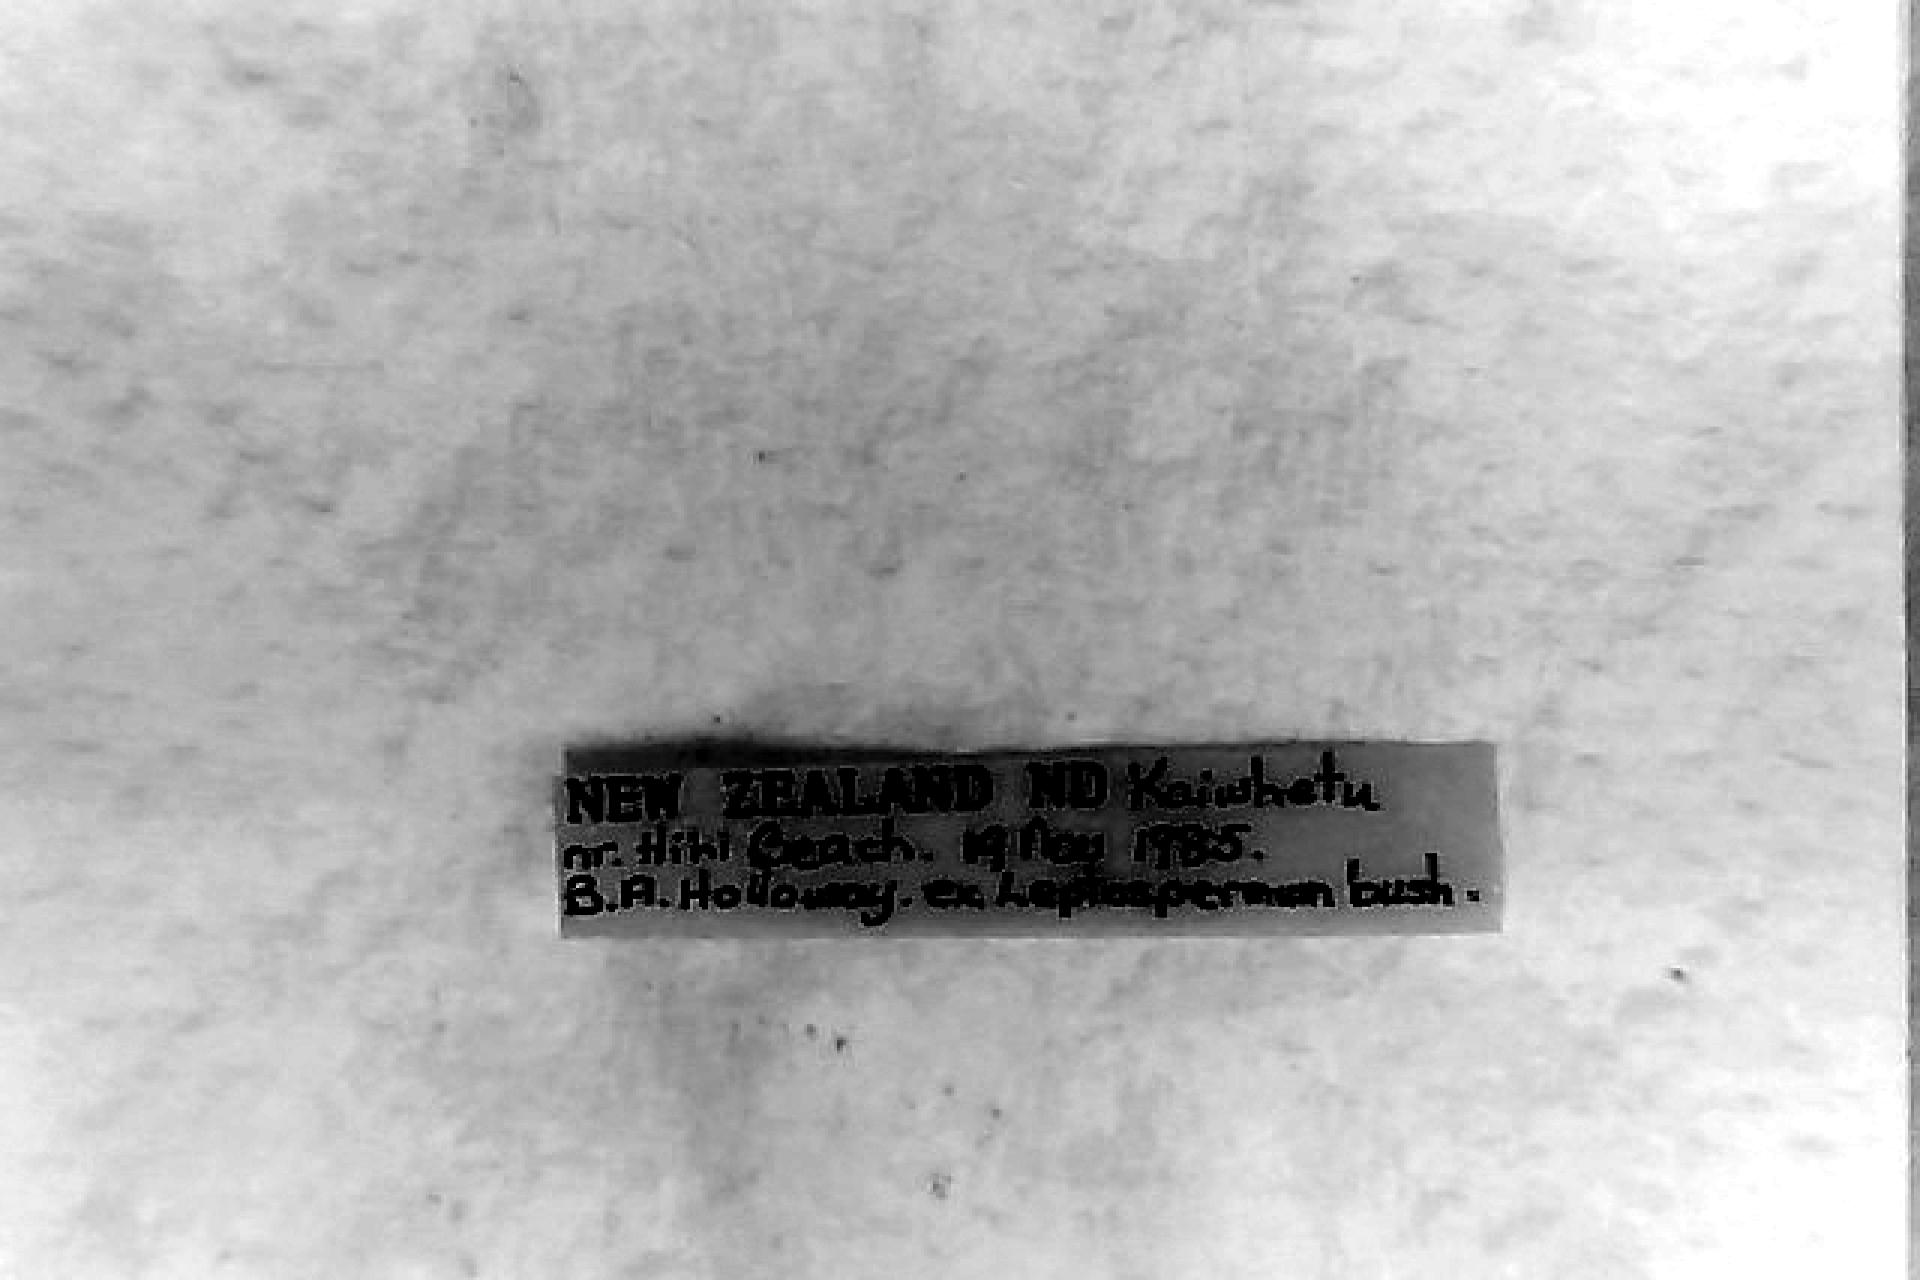 NEW ZEALAND ND Kaiwhetu
nr. Hihi Beach. 19 Nov 1985.
B.A. Holloway. ex Leptospermum bush.